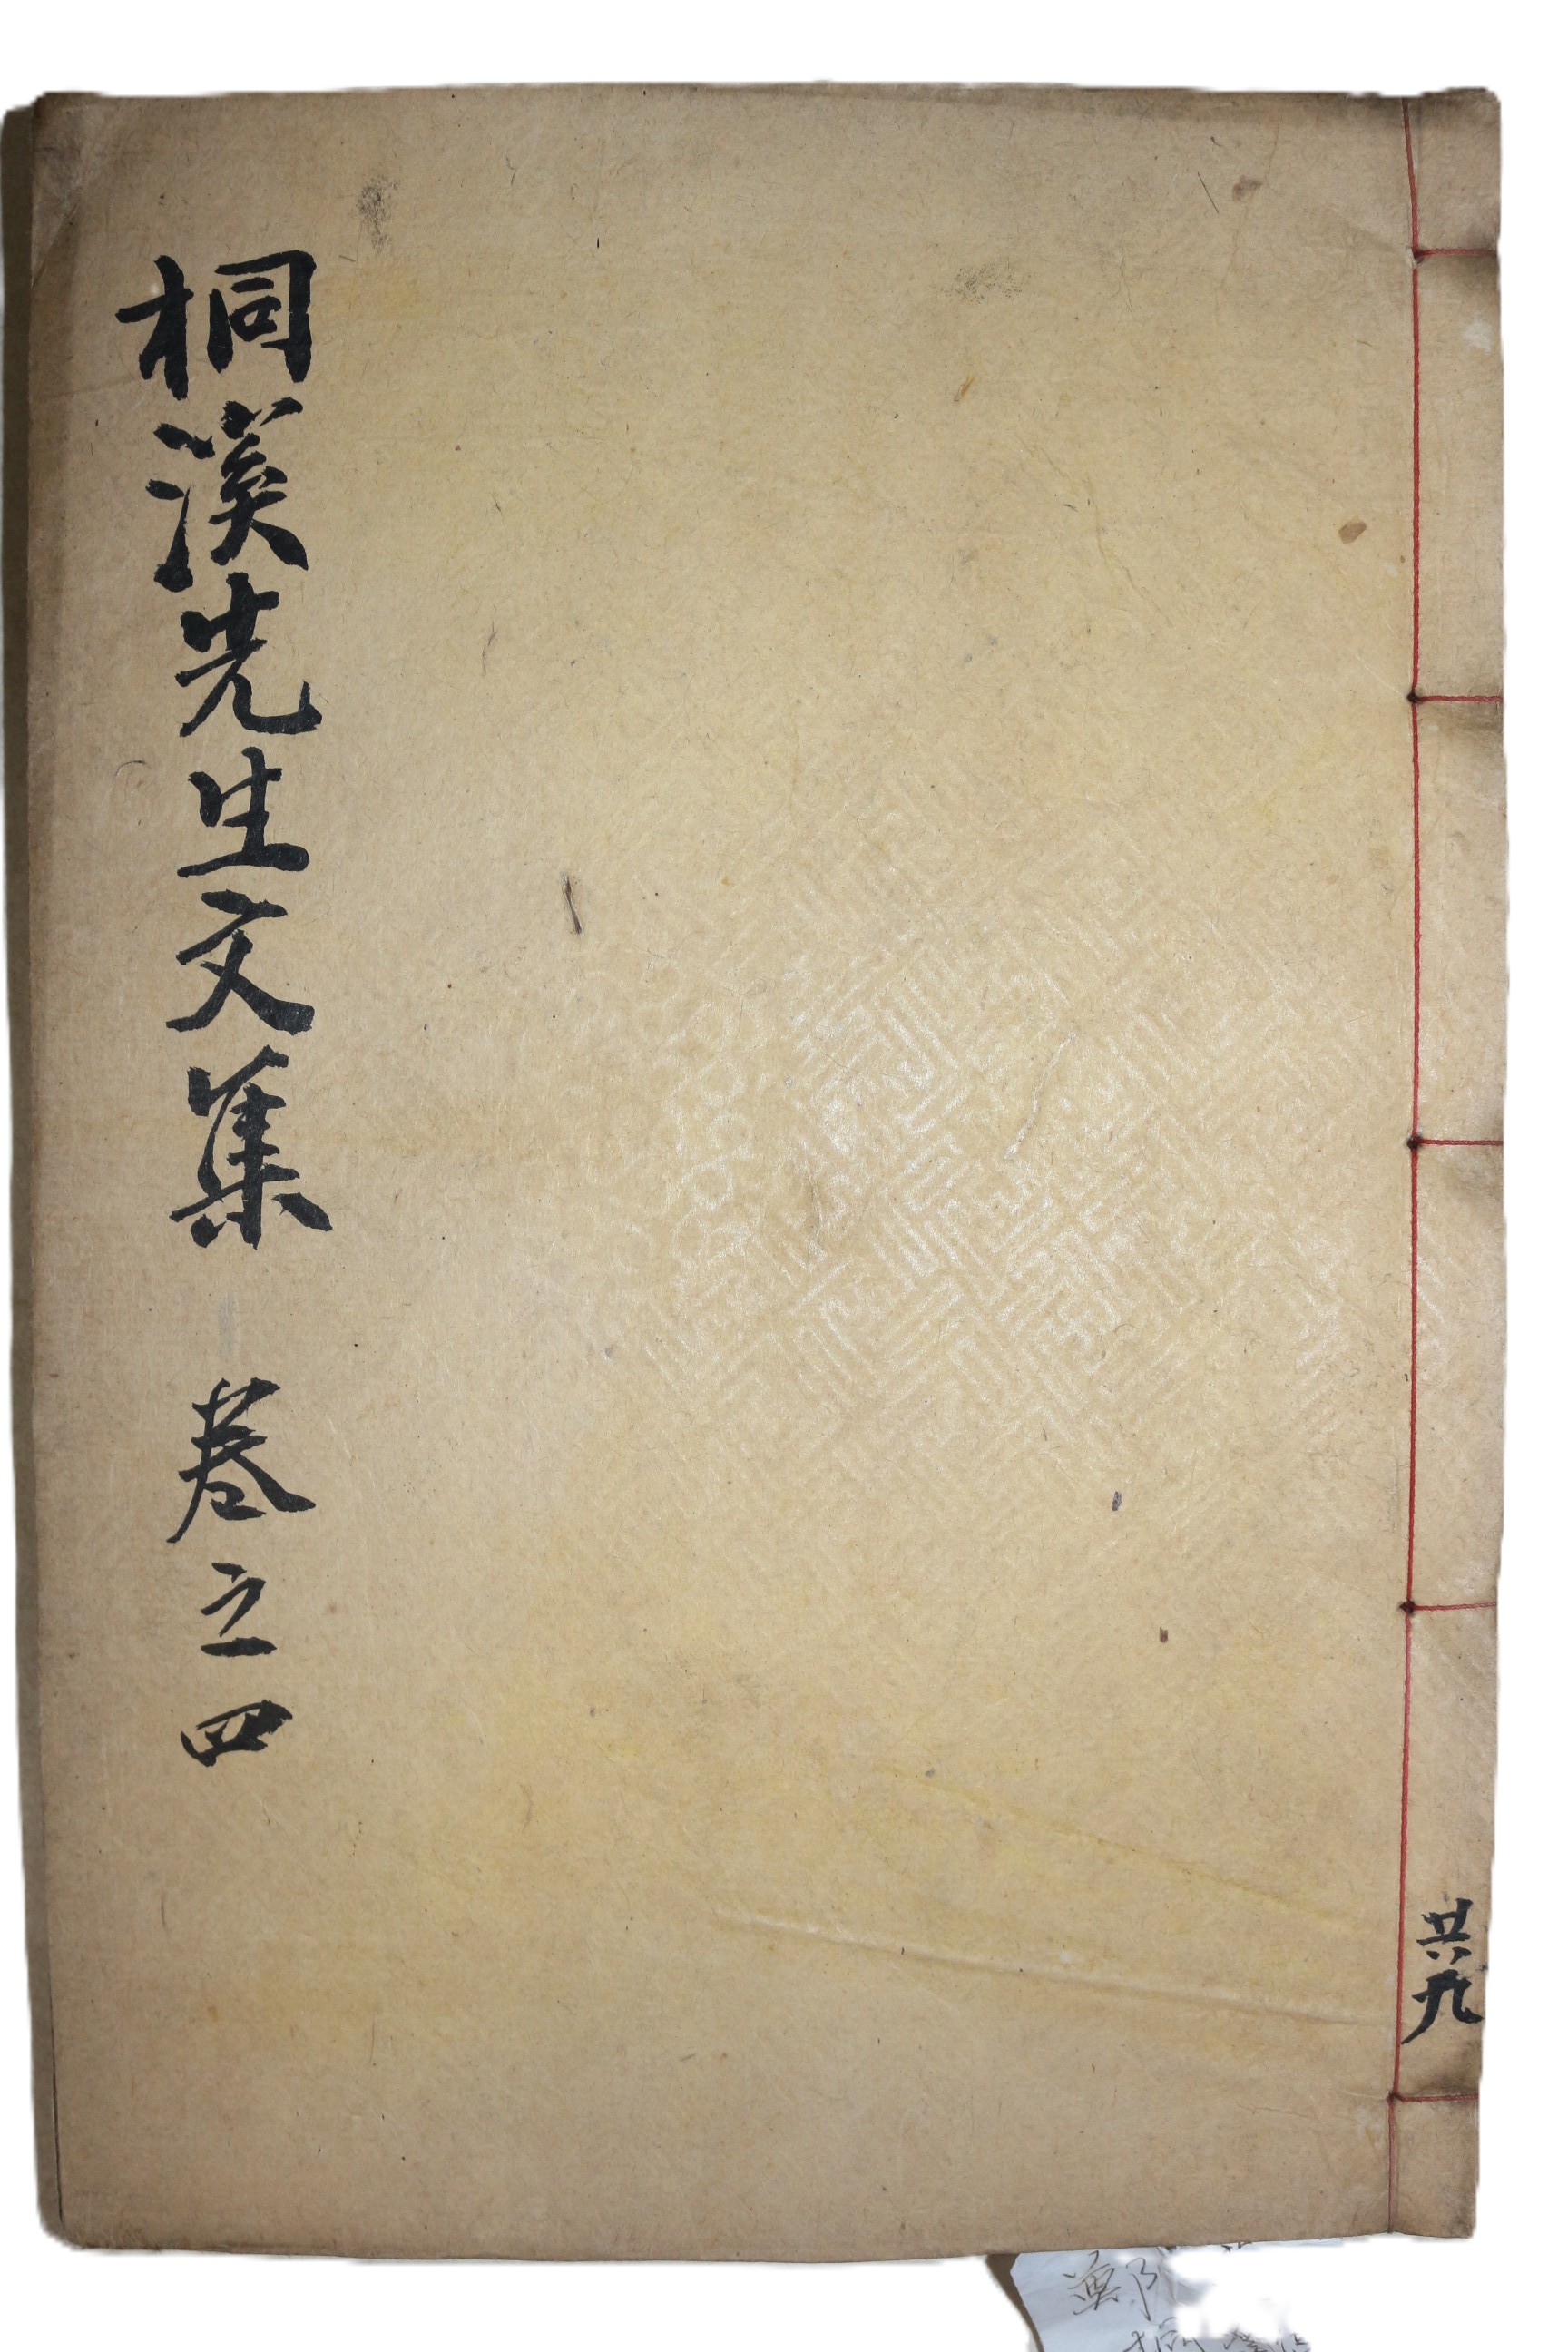 共九
桐溪先生文集 卷之四
鄭
桐溪